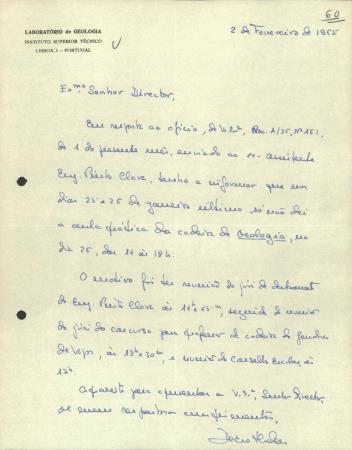 60
LABORATÓRIO de GEOLOGIA
INSTITUTO SUPERIOR TÉCNICO
LISBOA, 1 - PORTUGAL
2 de Fevereiro de 1955
Ex.mo Senhor Director,
Em resposta ao ofício, de V. Ex.ª, Proc. A/35, Nº 151,
de 1 do presente mês, enviado ao 1º assistente
Eng. Pinto Clara, tenho a informar que nos
dias 25 e 26 de Janeiro último só não dei
a aula prática da cadeira de Geologia, no
dia 26, das 14 às 18h.
O motivo foi ter reunião do júri de
do Eng. Pinto Clara às 11h 45m, seguida de reunião
do júri do concurso para professor da cadeira de
às 15h 30m, e reunião do Conselho Escolar, às
17h.
Aproveito para apresentar a V. Ex.ª, Senhor Director,
os meus respeitosos cumprimentos,